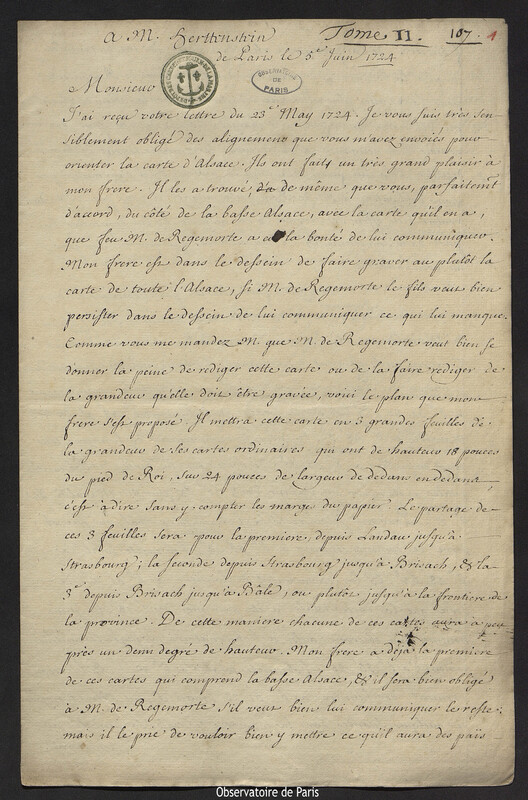 A M. Herttenstein Tome II. 107. 1
de Paris le 5e Juin 1724
OBSERVATOIRE DE PARIS
Monsieur
J'ai reçu votre lettre du 23e May 1724. Je vous suis très sen-
siblement obligé des alignemens que vous m'avez envoiés pour
orienter la carte d'Alsace. Ils ont faits un très grand plaisir à
mon frere. Il les a trouvé, de même que vous, parfaitemt
d'accord, du côté de la basse Alsace, avec la carte qu'il en a,
que feu M. de Regemorte a eu la bonté de lui communiquer.
Mon frere est dans le dessein de faire graver au plutôt la
carte de toute l'Alsace, si M. de Regemorte le fils veut bien
persister dans le dessein de lui communiquer ce qui lui manque.
Comme vous me mandez M. que M. de Regemorte veut bien se
donner la peine de rediger cette carte ou de la faire rediger de
la grandeur qu'elle doit être gravée, voici le plan que mon
frere s'est proposé. Il mettra cette carte en 3 grandes feuilles de
la grandeur de ses cartes ordinaires qui ont de hauteur 18 pouces
du pied de Roi, sur 24 pouces de largeur de dedans en dedans
c'est à dire sans y compter les marges du papier. Le partage de
ces 3 feuilles sera pour la premiere, depuis Landau jusqu'à
Strasbourg; la seconde depuis Strasbourg jusqu'à Brisach, & la
3e depuis Brisach jusqu'à Bâle, ou plutôt jusqu'à la frontiere de
la province. De cette maniere chacune de ces cartes aura à peu
près un demi degré de hauteur. Mon frere a déja la premiere
de ces cartes qui comprend la basse Alsace, & il sera bien obligé
à M. de Regemorte s'il veut bien lui communiquer le reste:
mais il le prie de vouloir bien y mettre ce qu'il aura des païs
Observatoire de Paris